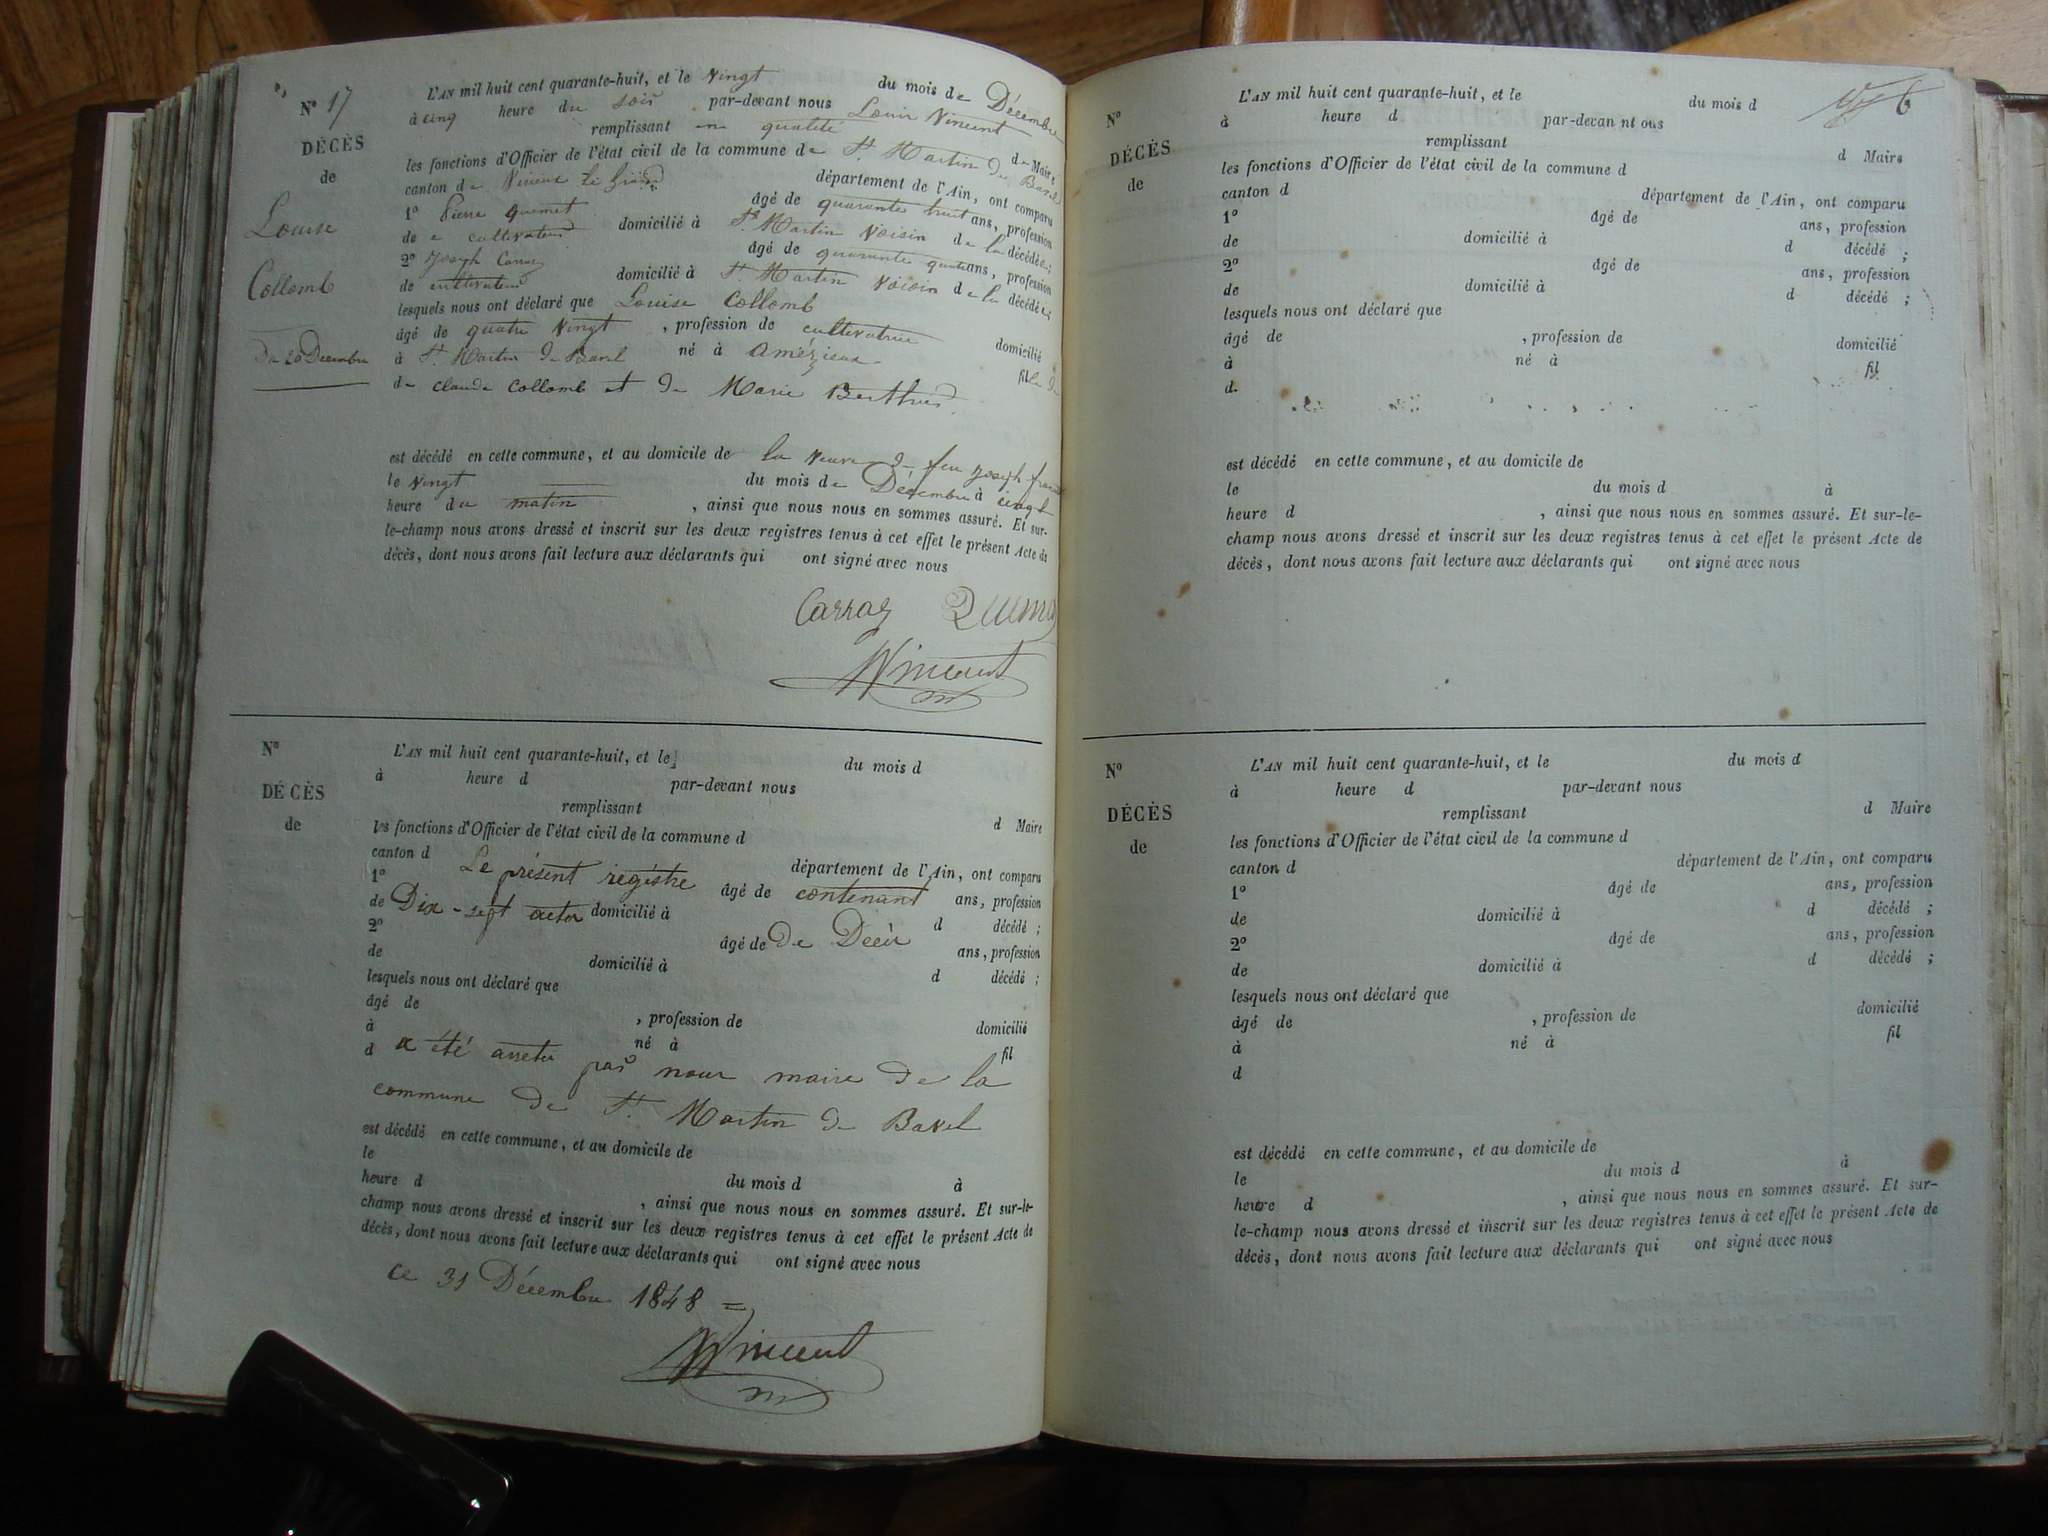 N° 17
DÉCÈS
de
Louise
Collomb
Du 20 Décembre
L'AN mil huit cent quarante-huit, et le vingt du mois de Décembre
à cinq heure du soir par-devant nous Louis Vincent
remplissant en qualité de Maire
les fonctions d'Officier de l'état civil de la commune de St Martin de Bavel
canton de Virieux le Grand département de l'Ain, ont comparu
1° Pierre Quemet âgé de quarante huit ans, profession
de cultivateur domicilié à St Martin voisin de la décédée ;
2° Joseph Carraz âgé de quarante quatre ans, profession
de cultivateur domicilié à St Martin voisin de la décédée ;
lesquels nous ont déclaré que Louise Collomb
âgé de quatre vingt , profession de cultivatrice domicilié
à St Martin de Bavel né à Amézieux fille de
de claude Collomb et de Marie Berthier
est décédé en cette commune, et au domicile de la veuve de feu Joseph
le vingt du mois de Décembre à cinq
heure du matin , ainsi que nous nous en sommes assuré. Et sur-
le-champ nous avons dressé et inscrit sur les deux registres tenus à cet effet le présent Acte de
décès, dont nous avons fait lecture aux déclarants qui ont signé avec nous
Carraz
Vincent
N°
DÉCÈS
de
L'AN mil huit cent quarante-huit, et le du mois d
à heure d par-devant nous
remplissant d Maire
les fonctions d'Officier de l'état civil de la commune d
canton d département de l'Ain, ont comparu
Le présent registre contenant
1° âgé de ans, profession
de domicilié à d décédé ;
Dix-sept actes de Décès
2° âgé de ans, profession
de domicilié à d décédé ;
lesquels nous ont déclaré que
âgé de , profession de domicilié
à né à fil
d
a été arreté par nous maire de la
commune de St Martin de Bavel
est décédé en cette commune, et au domicile de
le du mois d à
heure d , ainsi que nous nous en sommes assuré. Et sur-le-
champ nous avons dressé et inscrit sur les deux registres tenus à cet effet le présent Acte de
décès, dont nous avons fait lecture aux déclarants qui ont signé avec nous
ce 31 Décembre 1848
Vincent
6
N°
DÉCÈS
de
L'AN mil huit cent quarante-huit, et le du mois d
à heure d par-devan nt ous
remplissant d Maire
les fonctions d'Officier de l'état civil de la commune d
canton d département de l'Ain, ont comparu
1° âgé de ans, profession
de domicilié à d décédé ;
2° âgé de ans, profession
de domicilié à d décédé ;
lesquels nous ont déclaré que
âgé de , profession de domicilié
à né à fil
d.
est décédé en cette commune, et au domicile de
le du mois d à
heure d , ainsi que nous nous en sommes assuré. Et sur-le-
champ nous avons dressé et inscrit sur les deux registres tenus à cet effet le présent Acte de
décès, dont nous avons fait lecture aux déclarants qui ont signé avec nous
N°
DÉCÈS
de
L'AN mil huit cent quarante-huit, et le du mois d
à heure d par-devant nous
remplissant d Maire
les fonctions d'Officier de l'état civil de la commune d
canton d département de l'Ain, ont comparu
1° âgé de ans, profession
de domicilié à d décédé ;
2° âgé de ans, profession
de domicilié à d décédé ;
lesquels nous ont déclaré que
âgé de , profession de domicilié
à né à fil
d
est décédé en cette commune, et au domicile de
le du mois d à
heure d , ainsi que nous nous en sommes assuré. Et sur-
le-champ nous avons dressé et inscrit sur les deux registres tenus à cet effet le présent Acte de
décès, dont nous avons fait lecture aux déclarants qui ont signé avec nous